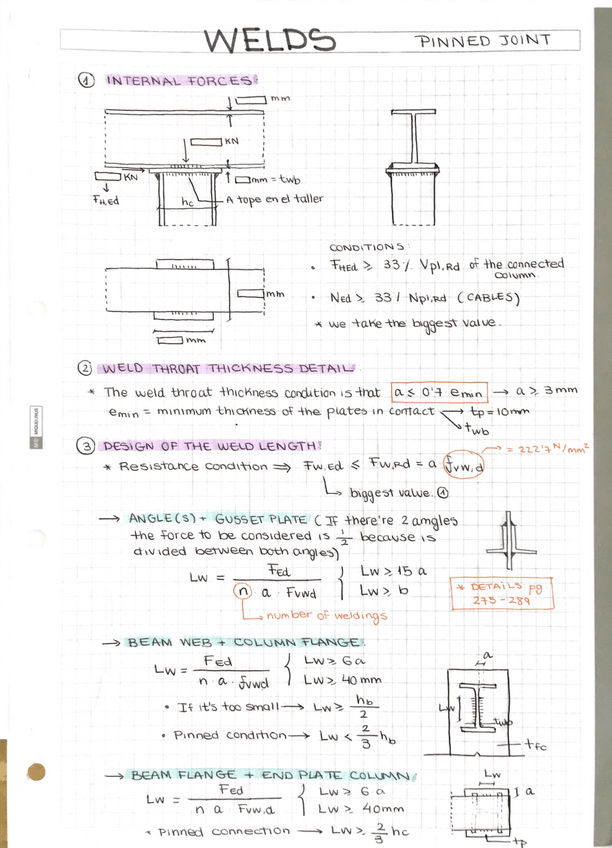 WELDS PINNED JOINT
① INTERNAL FORCES:
mm
KN
KN
mm = twb
FH,Ed
hc
A tope en el taller
CONDITIONS:
• FHEd ≥ 33% Vpl,Rd of the connected
column.
• NEd ≥ 33% Npl,Rd (CABLES)
* we take the biggest value.
mm
mm
② WELD THROAT THICKNESS DETAIL.
* The weld throat thickness condition is that a ≤ 0'7 emin → a ≥ 3mm
emin = minimum thickness of the plates in contact → tp = 10mm
twb
③ DESIGN OF THE WELD LENGTH:
= 222'7 N/mm²
* Resistance condition ⇒ Fw,Ed ≤ Fw,Rd = a fvw,d
biggest value ①
→ ANGLE(S) + GUSSET PLATE (If there're 2 amgles
the force to be considered is 1/2 because is
divided between both angles)
Lw = FEd / n · a · Fvwd { Lw ≥ 15 a
Lw ≥ b
number of weldings
* DETAILS pg
275-289
→ BEAM WEB + COLUMN FLANGE.
Lw = FEd / n · a · fvwd { Lw ≥ 6a
Lw ≥ 40mm
• If it's too small → Lw ≥ hb/2
• Pinned condition → Lw < 2/3 hb
a
Lw
twb
tfc
→ BEAM FLANGE + END PLATE COLUMN.
Lw = FEd / n a Fvw,d { Lw ≥ 6 a
Lw ≥ 40mm
• Pinned connection → Lw ≥ 2/3 hc
Lw
a
tp